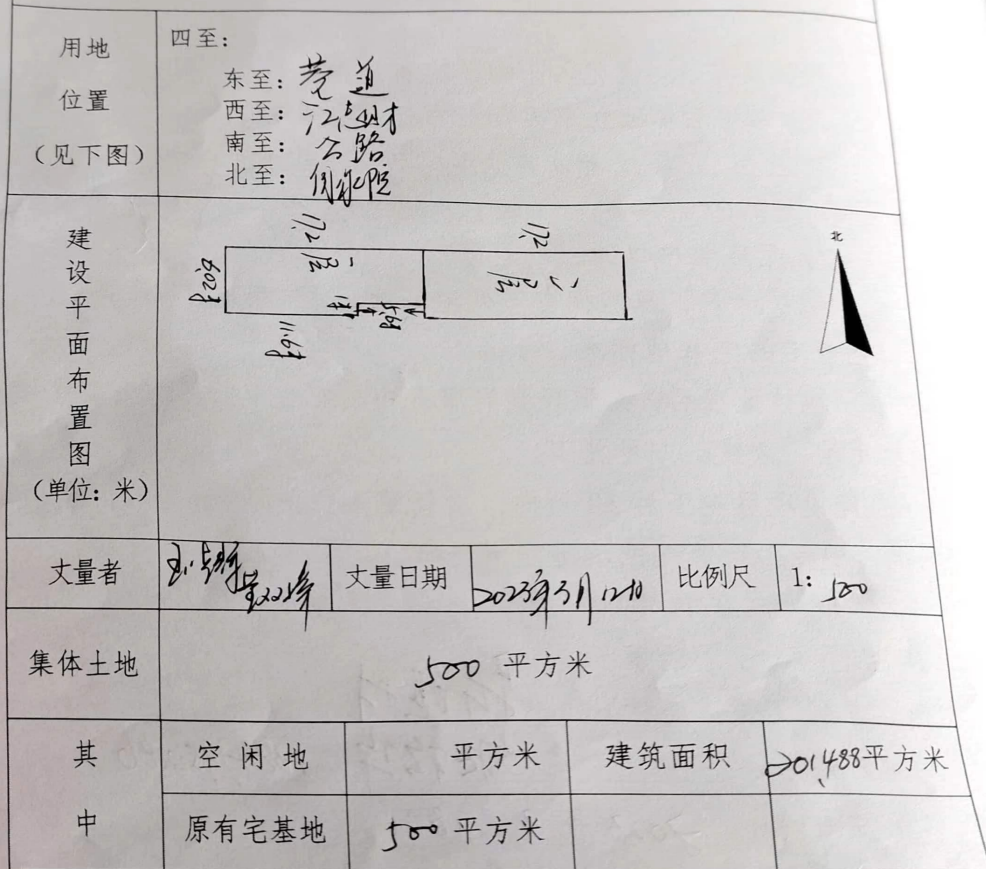 用地
位置
（见下图）
四至：
东至：巷道
西至：江志明才
南至：公路
北至：
建
设
平
面
布
置
图
（单位：米）
17.2
一层
6.02
11.6
17.2
二层
北
丈量者
丈量日期
2023年3月12日
比例尺
1：500
集体土地
500 平方米
其
中
空闲地
平方米
建筑面积
201.488平方米
原有宅基地
500 平方米